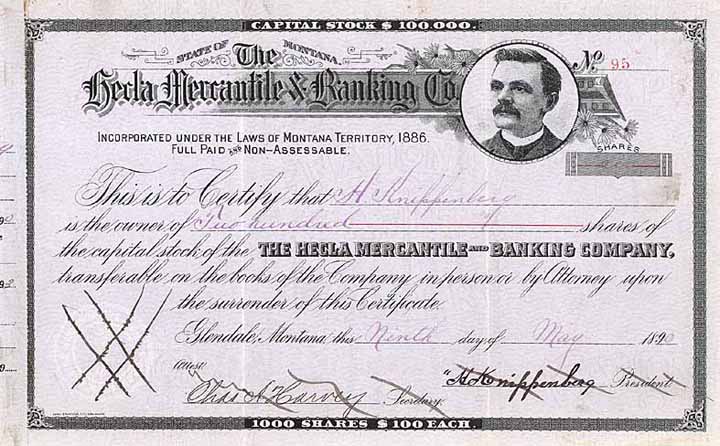 CAPITAL STOCK $100,000.
STATE OF MONTANA.
The
Hecla Mercantile & Banking Co.
No 95
INCORPORATED UNDER THE LAWS OF MONTANA TERRITORY, 1886.
FULL PAID AND NON-ASSESSABLE.
SHARES
This is to Certify that H. Knippenberg
is the owner of Two hundred shares of
the capital stock of the THE HECLA MERCANTILE AND BANKING COMPANY,
transferable on the books of the Company in person or by Attorney upon
the surrender of this Certificate.
Glendale, Montana, this Ninth day of May 1890
Attest
Chas A Harvey Secretary. "H Knippenberg President
1000 SHARES $100 EACH.